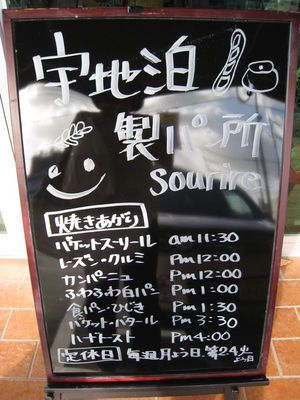 宇地泊
製パン所
Sourire
焼きあがり
バケットスリール am 11:30
レーズン・クルミ Pm 12:00
カンパーニュ Pm 12:00
ふわふわ白パン Pm 1:00
食パン・ひじき Pm 1:30
バケット・バタール Pm 3:30
ハードトースト Pm 4:00
定休日 毎週月よう日、第2.4火よう日